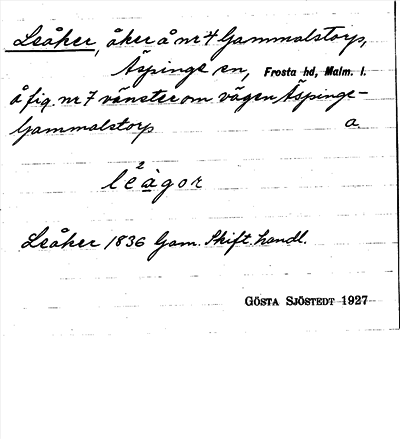 Leåker, åker å nr 4 Gammalstorp,
Äspinge sn, Frosta hd, Malm. l.
å fig. nr 7 vänster om vägen Äspinge-
Gammalstorp a.
leàgor
Leåker 1836 Gam. Skift. handl.
GÖSTA SJÖSTEDT 1927